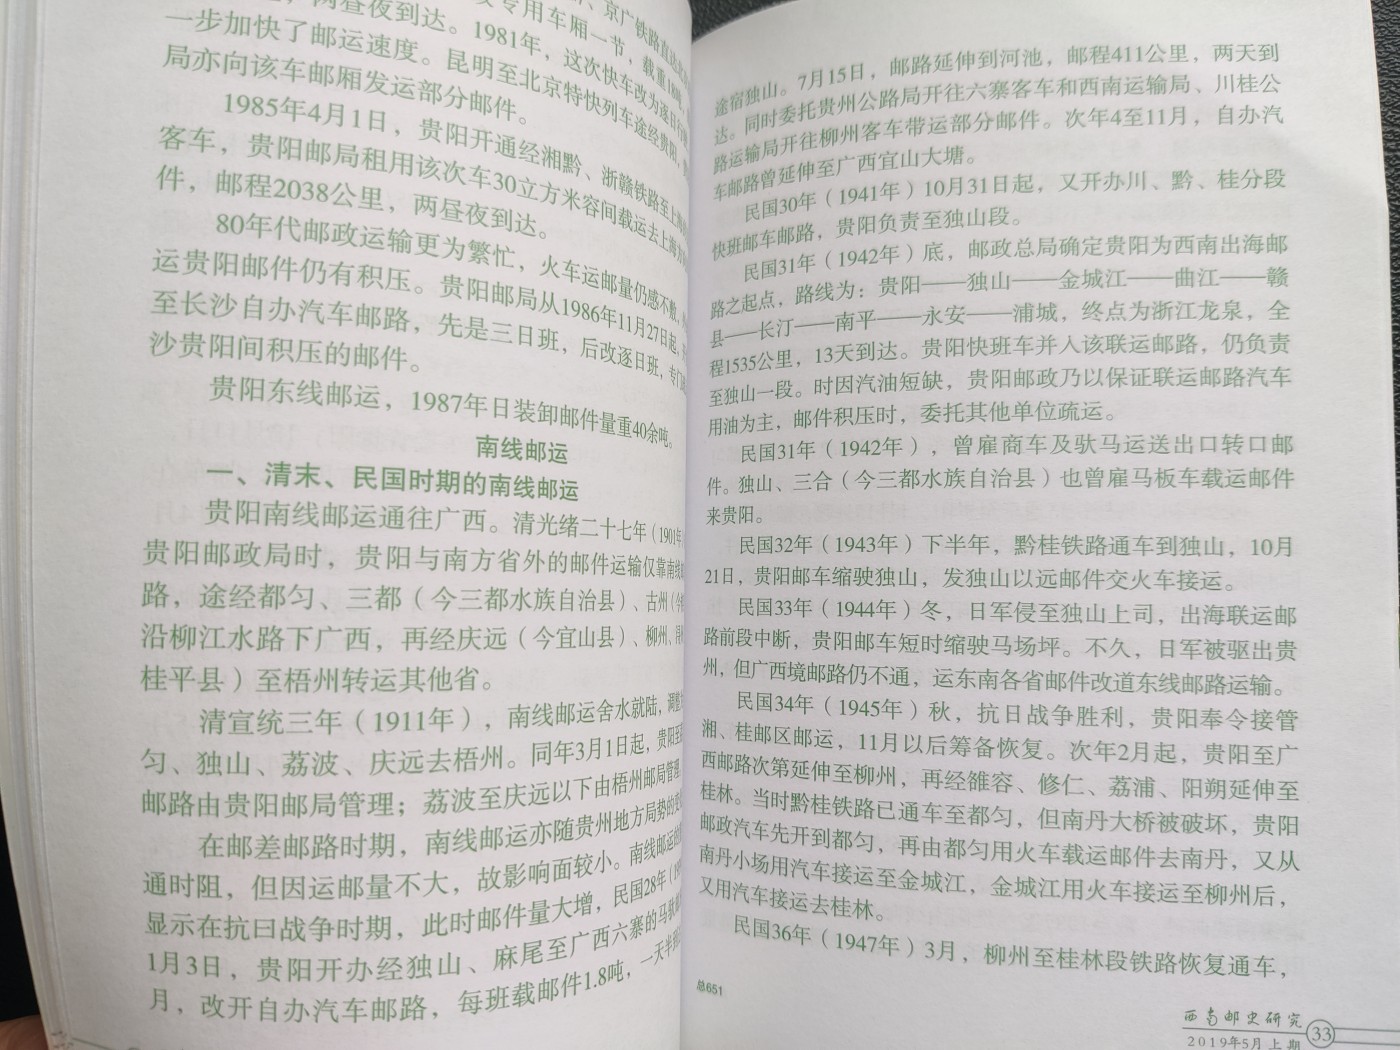 两昼夜到达。1981年，这次快车改为逐日
专用车厢一节，载重
、京广铁路直达
一步加快了邮运速度。昆明至北京特快列车途经贵阳，
局亦向该车邮厢发运部分邮件。
1985年4月1日，贵阳开通经湘黔、浙赣铁路至上海
客车，贵阳邮局租用该次车30立方米容间载运去上海
件，邮程2038公里，两昼夜到达。
80年代邮政运输更为繁忙，火车运邮量仍感不敷，
运贵阳邮件仍有积压。贵阳邮局从1986年11月27日起，
至长沙自办汽车邮路，先是三日班，后改逐日班，专门
沙贵阳间积压的邮件。
贵阳东线邮运，1987年日装卸邮件量重40余吨。
南线邮运
一、清末、民国时期的南线邮运
贵阳南线邮运通往广西。清光绪二十七年（1901年）
贵阳邮政局时，贵阳与南方省外的邮件运输仅靠南线
路，途经都匀、三都（今三都水族自治县）、古州（今
沿柳江水路下广西，再经庆远（今宜山县）、柳州、
桂平县）至梧州转运其他省。
清宣统三年（1911年），南线邮运舍水就陆，调整
匀、独山、荔波、庆远去梧州。同年3月1日起，贵阳至
邮路由贵阳邮局管理；荔波至庆远以下由梧州邮局管理
在邮差邮路时期，南线邮运亦随贵州地方局势的
通时阻，但因运邮量不大，故影响面较小。南线邮运
显示在抗日战争时期，此时邮件量大增，民国28年（
1月3日，贵阳开办经独山、麻尾至广西六寨的马
月，改开自办汽车邮路，每班载邮件1.8吨，一天半
途宿独山。7月15日，邮路延伸到河池，邮程411公里，两天到
达。同时委托贵州公路局开往六寨客车和西南运输局、川桂公
路运输局开往柳州客车带运部分邮件。次年4至11月，自办汽
车邮路曾延伸至广西宜山大塘。
民国30年（1941年）10月31日起，又开办川、黔、桂分段
快班邮车邮路，贵阳负责至独山段。
民国31年（1942年）底，邮政总局确定贵阳为西南出海邮
路之起点，路线为：贵阳——独山——金城江——曲江——赣
县——长汀——南平——永安——浦城，终点为浙江龙泉，全
程1535公里，13天到达。贵阳快班车并入该联运邮路，仍负责
至独山一段。时因汽油短缺，贵阳邮政乃以保证联运邮路汽车
用油为主，邮件积压时，委托其他单位疏运。
民国31年（1942年），曾雇商车及驮马运送出口转口邮
件。独山、三合（今三都水族自治县）也曾雇马板车载运邮件
来贵阳。
民国32年（1943年）下半年，黔桂铁路通车到独山，10月
21日，贵阳邮车缩驶独山，发独山以远邮件交火车接运。
民国33年（1944年）冬，日军侵至独山上司，出海联运邮
路前段中断，贵阳邮车短时缩驶马场坪。不久，日军被驱出贵
州，但广西境邮路仍不通，运东南各省邮件改道东线邮路运输。
民国34年（1945年）秋，抗日战争胜利，贵阳奉令接管
湘、桂邮区邮运，11月以后筹备恢复。次年2月起，贵阳至广
西邮路次第延伸至柳州，再经雒容、修仁、荔浦、阳朔延伸至
桂林。当时黔桂铁路已通车至都匀，但南丹大桥被破坏，贵阳
邮政汽车先开到都匀，再由都匀用火车载运邮件去南丹，又从
南丹小场用汽车接运至金城江，金城江用火车接运至柳州后，
又用汽车接运去桂林。
民国36年（1947年）3月，柳州至桂林段铁路恢复通车，
总651
西南邮史研究
2019年5月上期
33